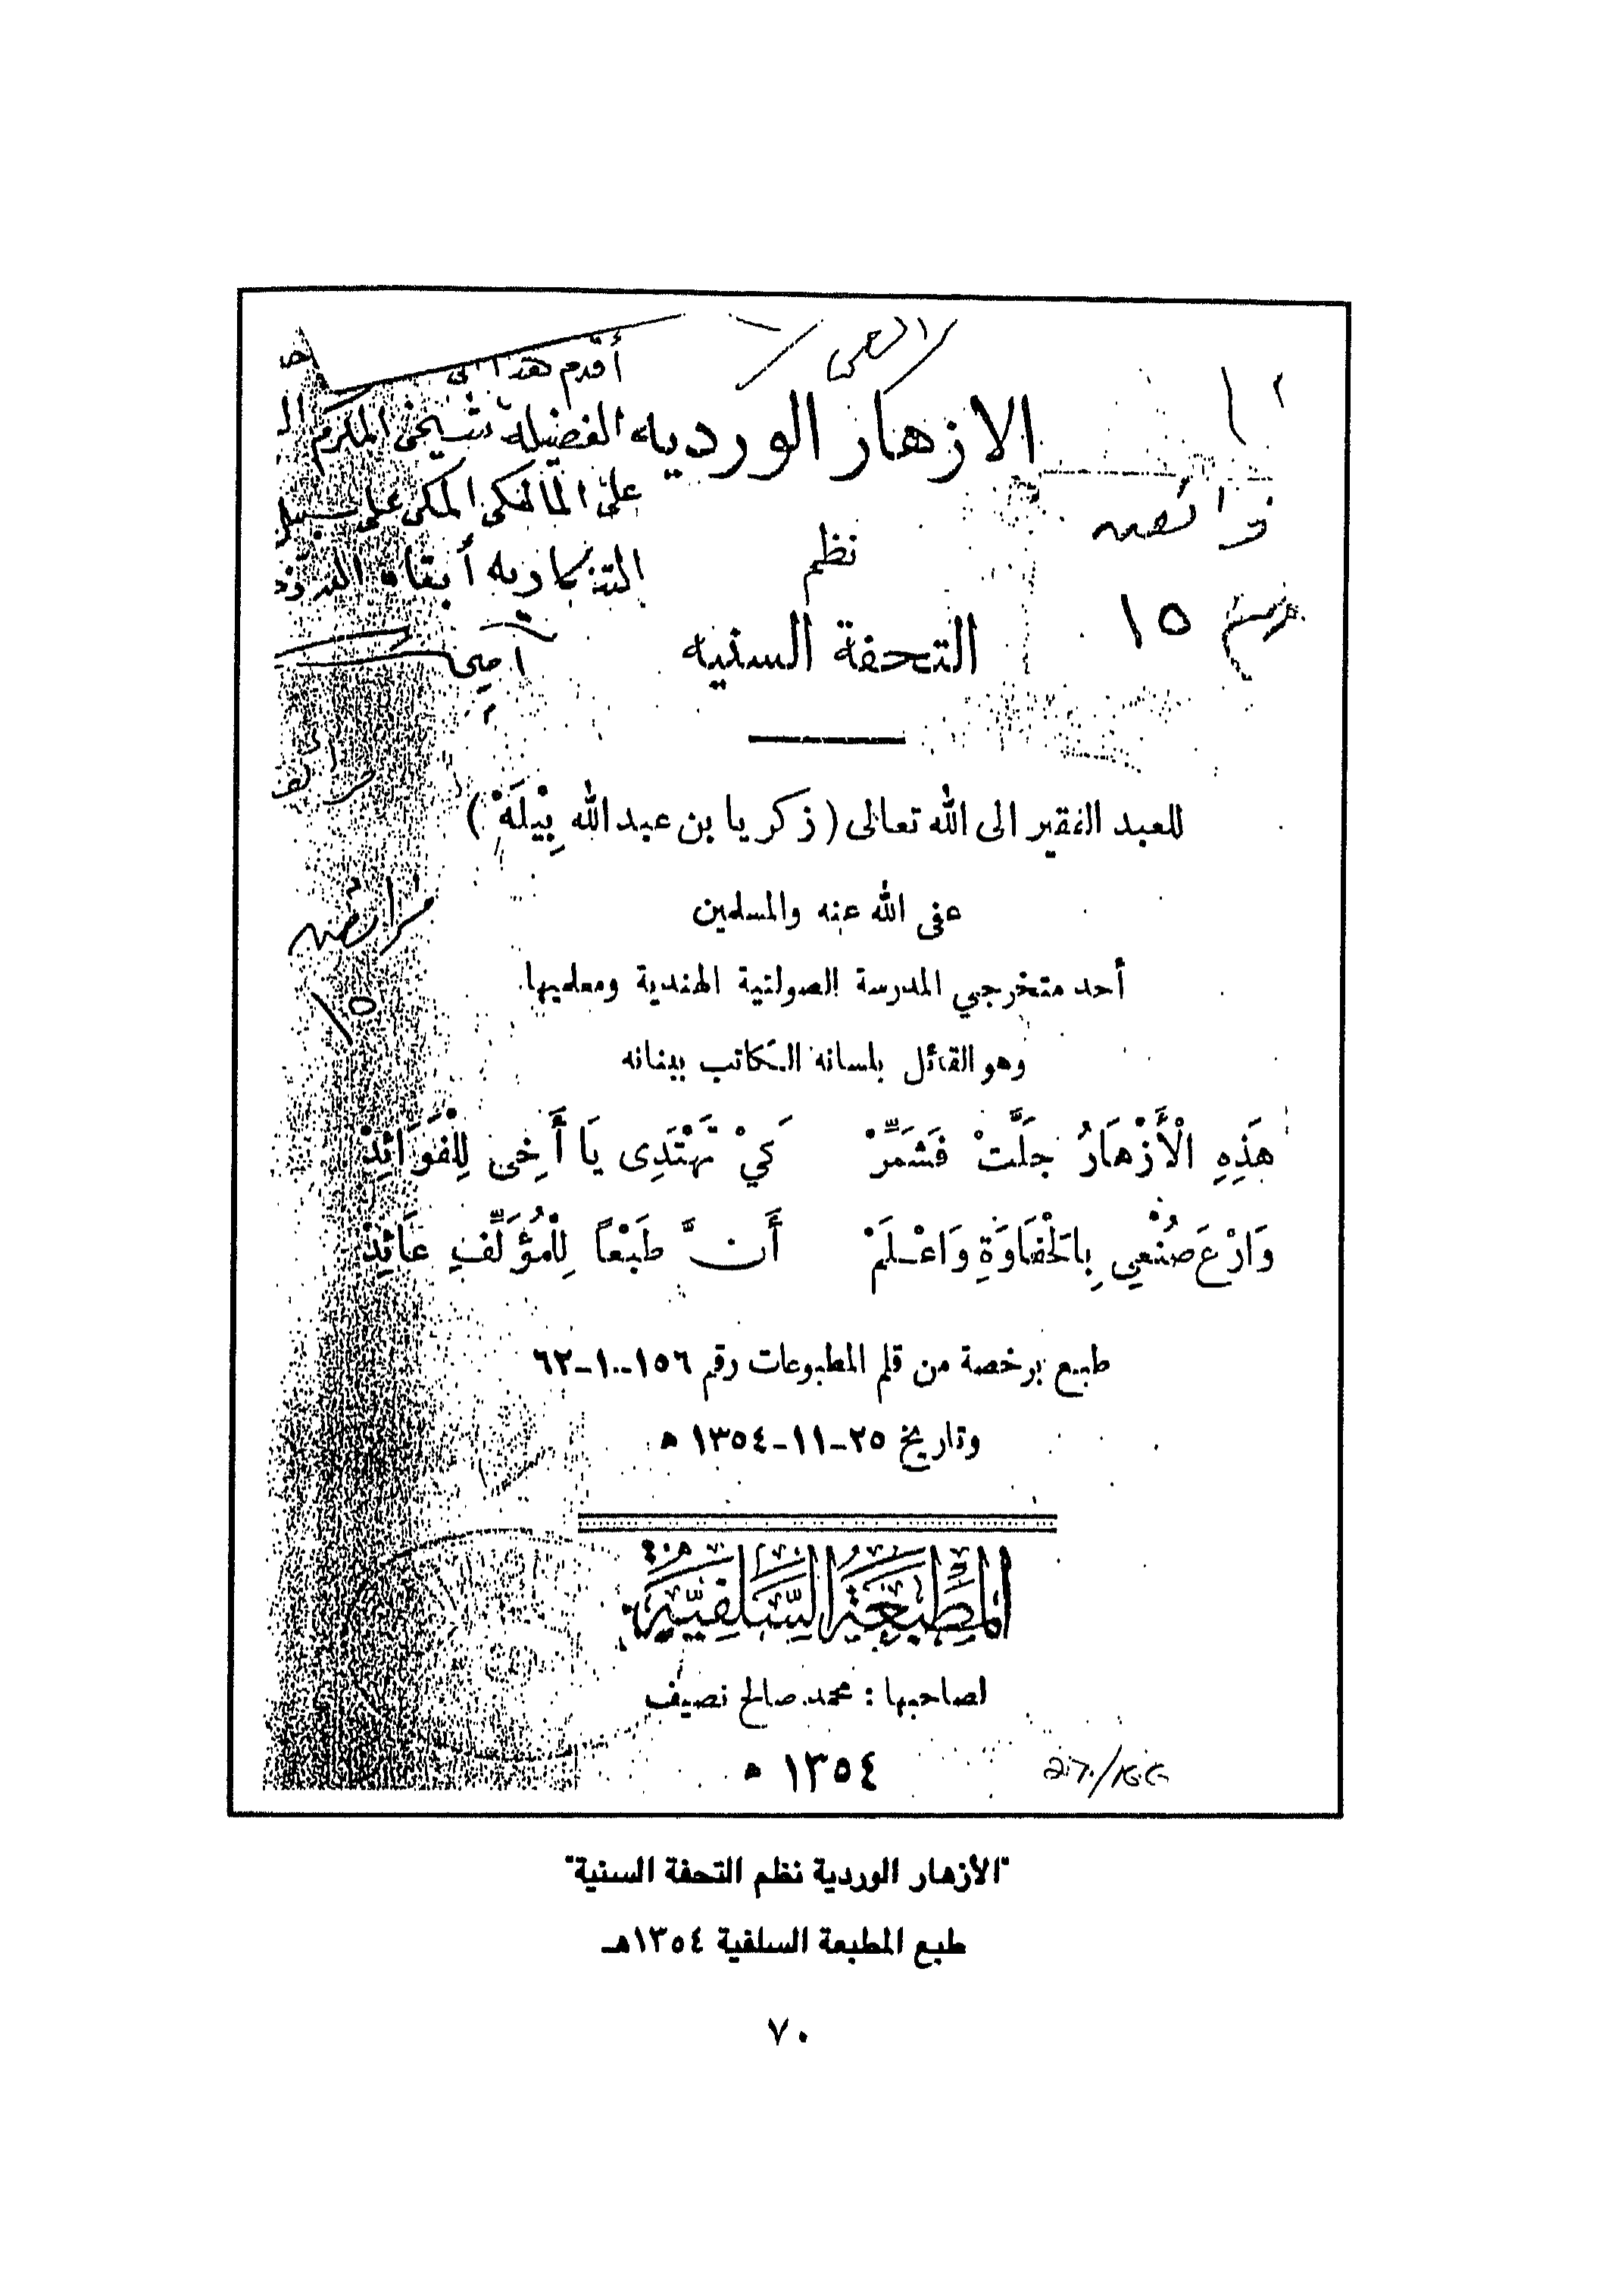 أقدم هذا الى
الفضيلة شيخي المكرم
على المالكى المكى على سبيل
التذكاريه أبقاه
آمين
الازهار الورديه
نظم
التحفة السنيه
فرائض
١٥
للعبد الفقير الى الله تعالى ( زكريا بن عبد الله بِيْلَهْ )
عفى الله عنه والمسلمين
أحد متخرجي المدرسة الصولتية الهندية ومعلميها
وهو القائل بلسانه الكاتب ببنانه
هَذِهِ الْأَزْهَارُ جَلَّتْ فَشَمِّرْ كَيْ تَهْتَدِى يَا أَخِى لِلْفَوَائِدْ
وَارْعَ صُنْعِي بِالحَفَاوَةِ وَاعْلَمْ أَنَّ طَبْعاً لِلْمُؤَلِّفِ عَائِدْ
طبع برخصة من قلم المطبوعات رقم ١٥٦-١٠-٦٢
وتاريخ ٢٥-١١-١٣٥٤ ه
المَطبَعَة السَّلفيَّة
لصاحبها : محمد صالح نصيف
١٣٥٤ ه
فرائض
١٥
"الأزهار الوردية نظم التحفة السنية"
طبع المطبعة السلفية ١٣٥٤هـ
٧٠